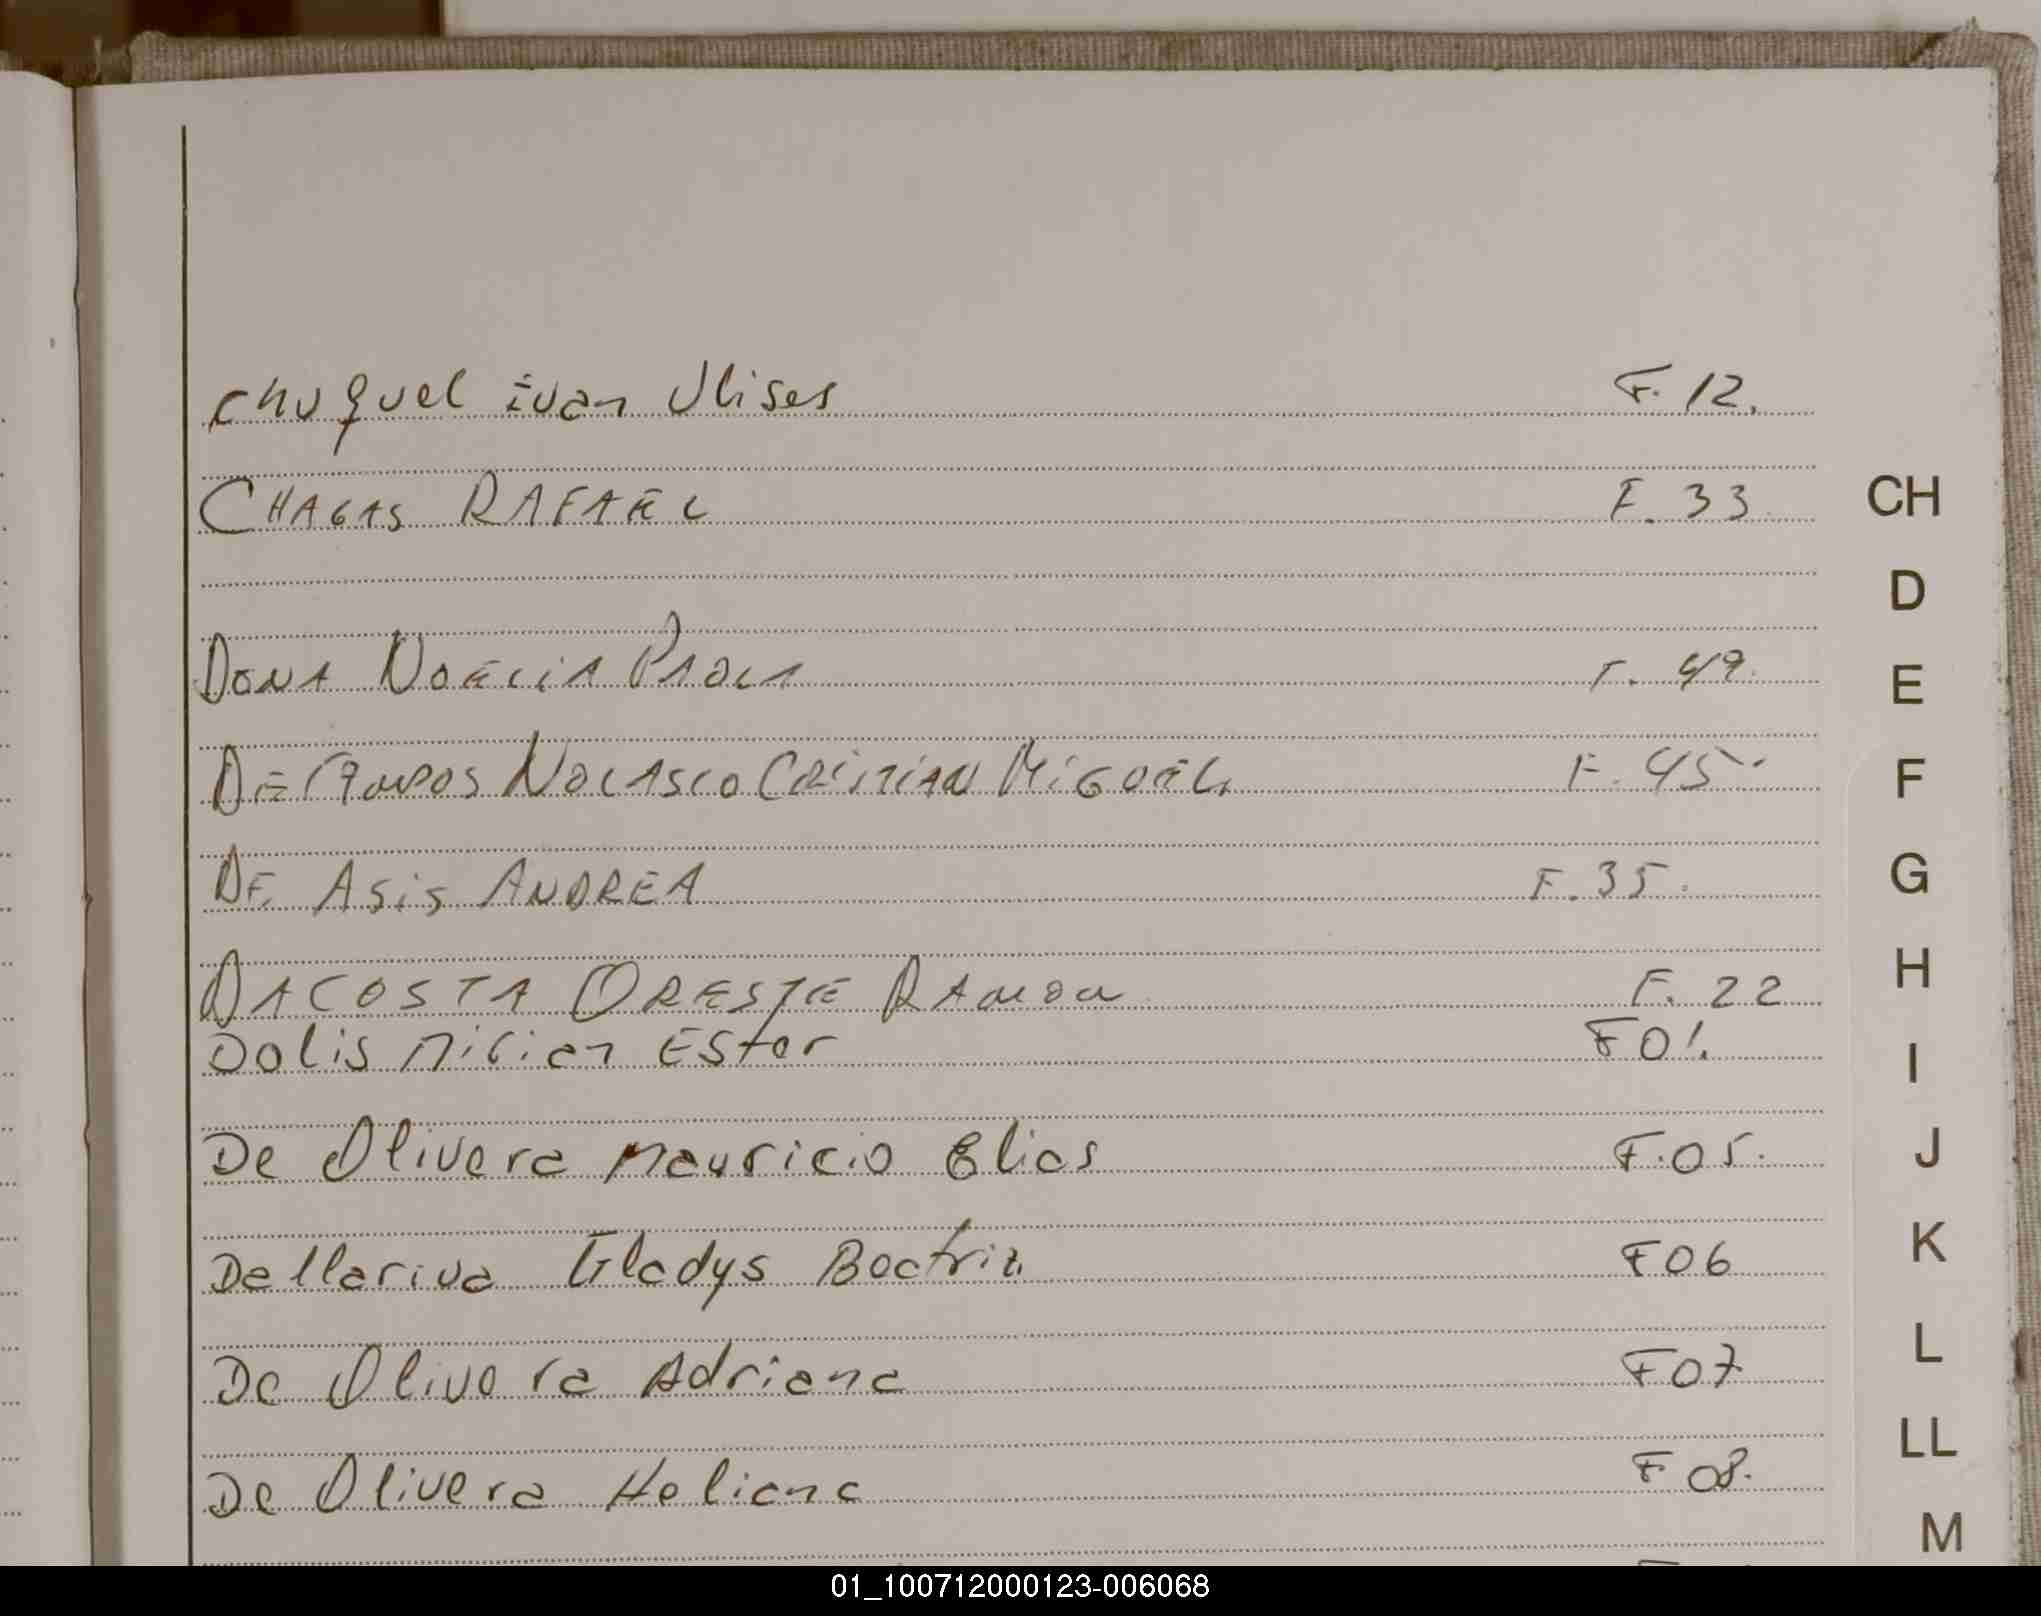 Chuquel Ivan Ulises F. 12.
CHAGAS RAFAEL F. 33
CH
D
DONA NOELIA PAOLA F. 49.
E
DE CAMPOS NOLASCO CRISTIAN MIGUEL F. 45.
F
DE ASIS ANDREA F. 35.
G
DACOSTA ORESTE RAMON F. 22
H
Dolis Mirian Ester F01.
I
De Olivera Mauricio Elias F.05.
J
Dellariva Gladys Beatriz F06
K
De Olivera Adriana F07
L
De Olivera Heliana F 08.
LL
M
01_100712000123-006068